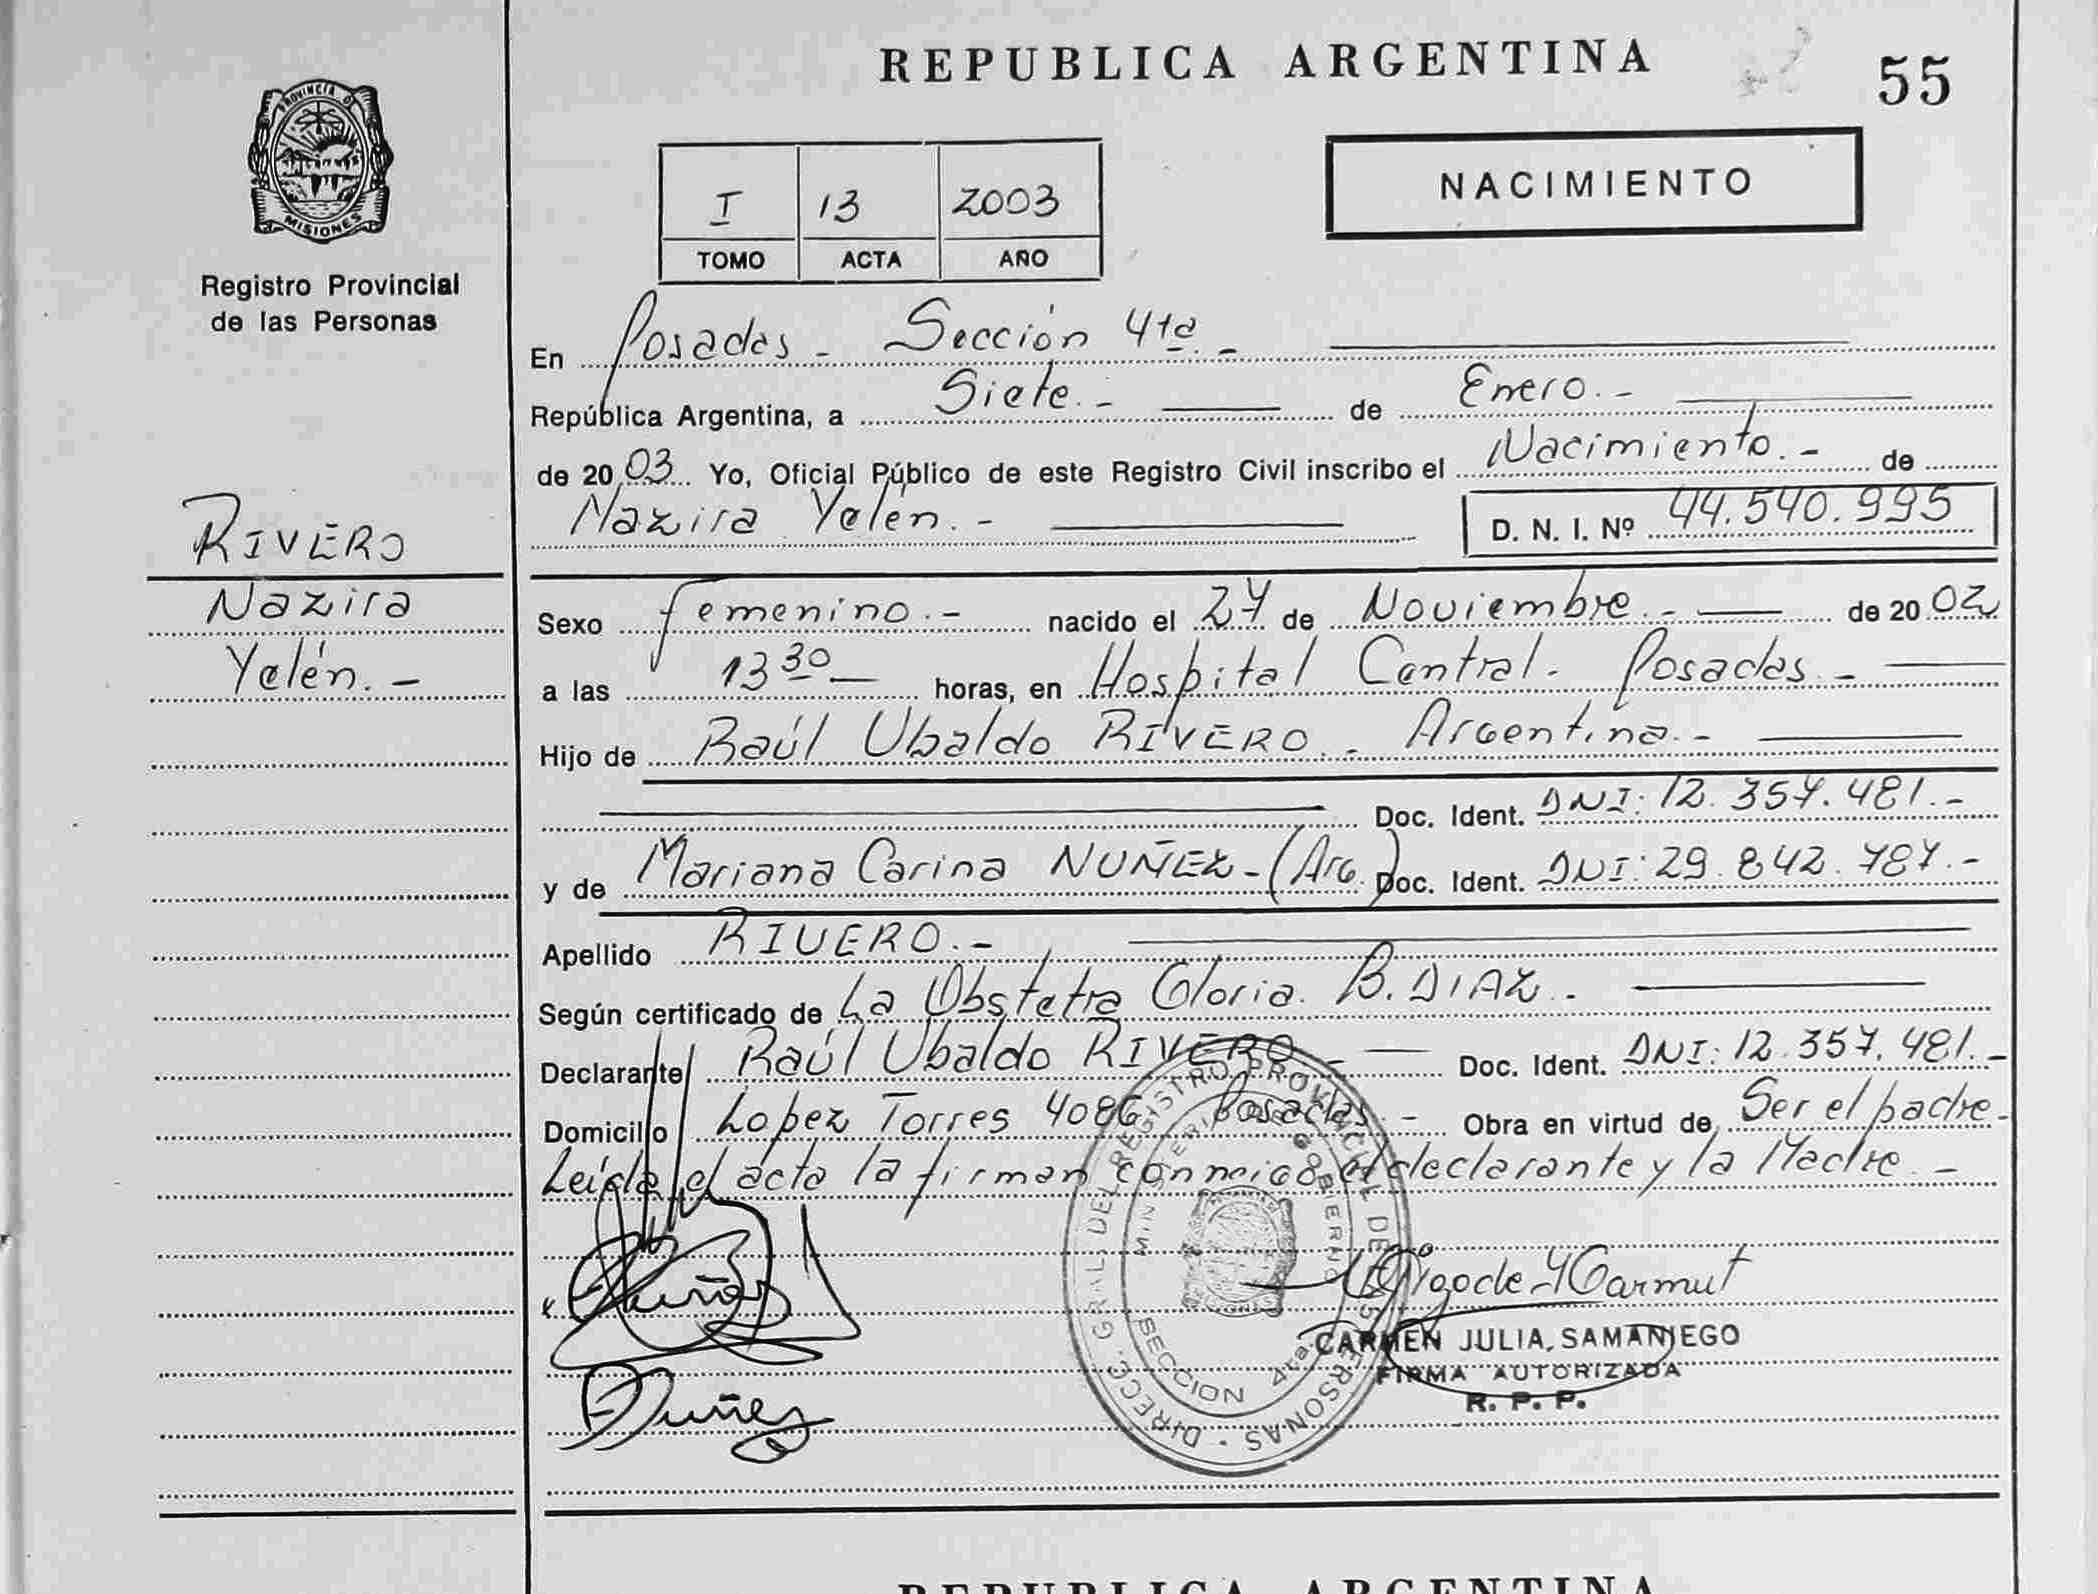 REPUBLICA ARGENTINA
55
PROVINCIA DE
MISIONES
Registro Provincial
de las Personas
I 13 2003
TOMO ACTA AÑO
NACIMIENTO
En Posadas - Sección 4ta. -
República Argentina, a Siete. - de Enero. -
de 20 03 Yo, Oficial Público de este Registro Civil inscribo el Nacimiento. - de
Nazira Yalén. - D. N. I. Nº 44.540.995
RIVERO
Nazira
Yalén. -
Sexo femenino. - nacido el 27 de Noviembre. - de 20 02
a las 13 30 horas, en Hospital Central. Posadas. -
Hijo de Raúl Ubaldo RIVERO. - Argentina. -
Doc. Ident. DNI: 12.357.481. -
y de Mariana Carina NUÑEZ - (Arg.) Doc. Ident. DNI: 29.842.787. -
Apellido RIVERO. -
Según certificado de La Obstetra Gloria B. DIAZ. -
Declarante Raúl Ubaldo RIVERO - Doc. Ident. DNI: 12.357.481. -
Domicilio Lopez Torres 4086 Posadas. - Obra en virtud de Ser el padre. -
Leída el acta la firman conmigo el declarante y la Madre. -
Nuñez
DIRECC. GRAL DEL REGISTRO PROVINCIAL DE PERSONAS
GOBIERNO
SECCION 4ta
CARMEN JULIA SAMANIEGO
FIRMA AUTORIZADA
R. P. P.
REPUBLICA ARGENTINA